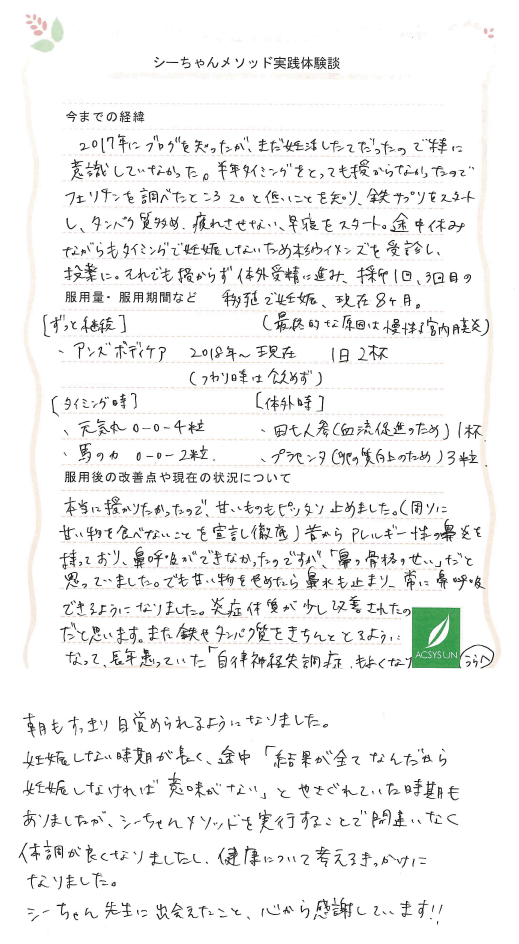 シーちゃんメソッド実践体験談
今までの経緯
2017年にブログを知ったが、まだ妊活したてだったので特に
意識していなかった。半年タイミングをとっても授からなかったので
フェリチンを調べたところ20と低いことを知り、鉄サプリをスタート
し、タンパク質多め、疲れさせない、早寝をスタート。途中休み
ながらもタイミングで妊娠しないため本幼ウイメンズを受診し、
投薬に。それでも授からず体外受精に進み、採卵1回、3回目の
服用量・服用期間など 移植で妊娠、現在8ヶ月。
[ずっと継続] (最終的な原因は慢性子宮内膜炎)
・アンズボディケア 2018年～現在 1日2杯
(つわり時は飲めず)
[タイミング時] [体外時]
・元気丸 0-0-4粒 ・田七人参(血流促進のため)1杯
・馬の力 0-0-2粒 ・プラセンタ(卵の質向上のため)3粒
服用後の改善点や現在の状況について
本当に授かりたかったので、甘いものもピッタリ止めました。(周りに
甘い物を食べないことを宣言し徹底)昔からアレルギー性の鼻炎を
持っており、鼻呼吸ができなかったのですが、「鼻の骨格のせい」だと
思っていました。でも甘い物をやめたら鼻水も止まり、常に鼻呼吸
できるようになりました。炎症体質が少し改善されたの
だと思います。また鉄やタンパク質をきちんととるように
なって、長年患っていた「自律神経失調症」もよくなり
ACSYSUN
うらへ
朝もすっきり目覚められるようになりました。
妊娠しない時期が長く、途中「結果が全てなんだから
妊娠しなければ意味がない」とやさぐれていた時期も
ありましたが、シーちゃんメソッドを実行することで間違いなく
体調が良くなりましたし、健康について考えるきっかけに
なりました。
シーちゃん先生に出会えたこと、心から感謝しています!!